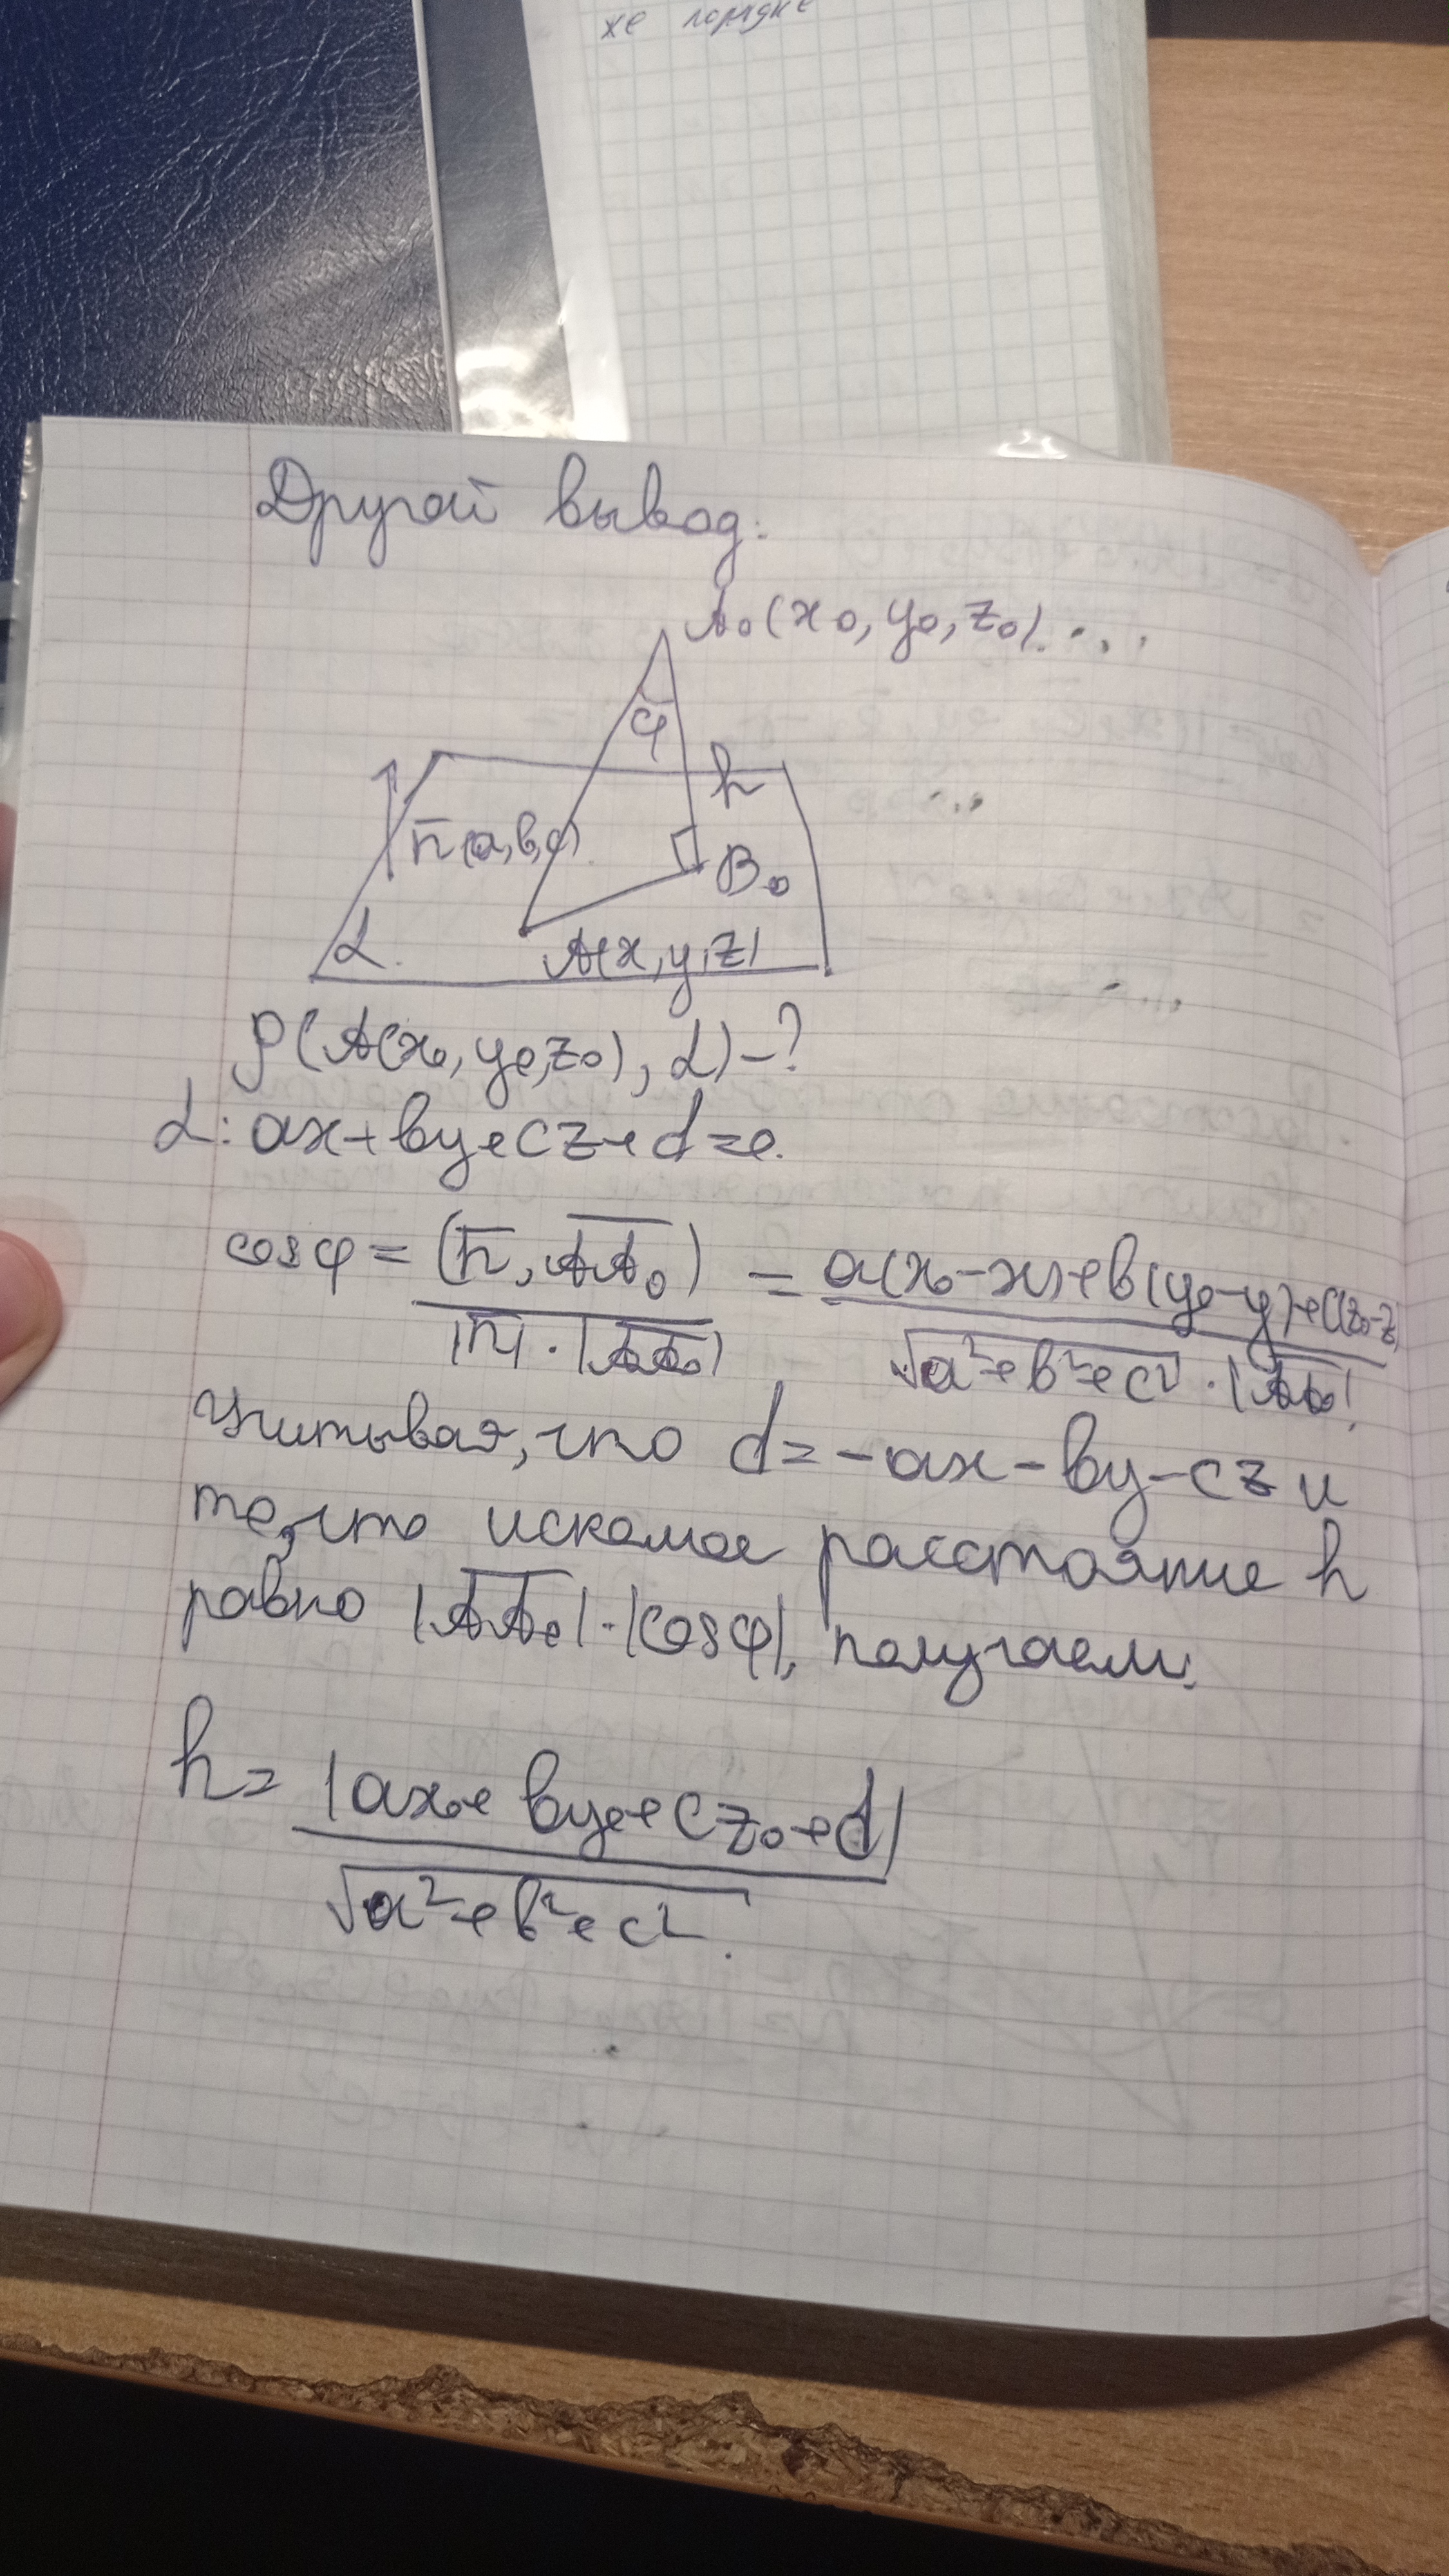 же порядке
Другой вывод:
A₀(x₀, y₀, z₀)
φ
h
n̅(a, b, c)
B₀
α
A(x, y, z)
ρ(A(x₀, y₀, z₀), α) - ?
α: ax + by + cz + d = 0.
cos φ = (n̅, A̅A̅₀) / |n̅| · |A̅A̅₀| = a(x₀ - x) + b(y₀ - y) + c(z₀ - z) / √a² + b² + c² · |A̅A̅₀|.
Учитывая, что d = -ax - by - cz и
то, что искомое расстояние h
равно |A̅A̅₀| · |cos φ|, получаем:
h = |ax₀ + by₀ + cz₀ + d| / √a² + b² + c².